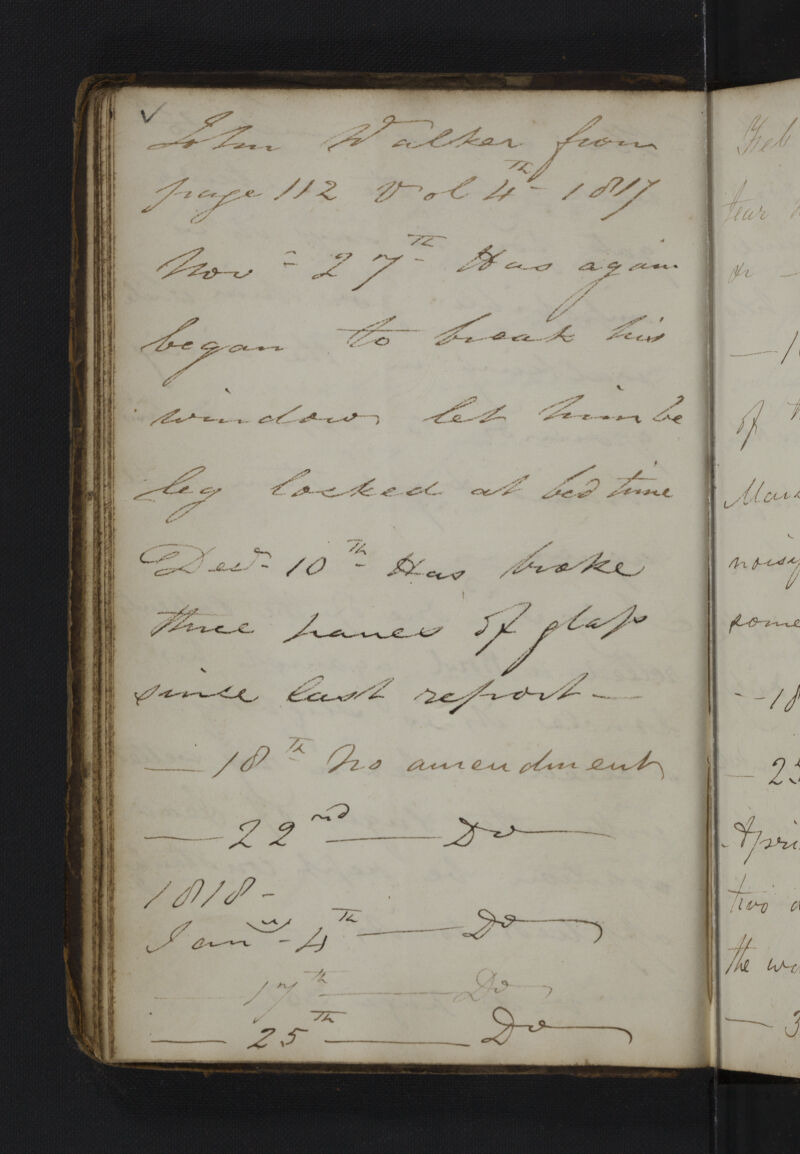 John Walker from
page 112 Vol 4th - 1817
Nov - 27th Has again
began to break his
window let him be
leg locked at bed time
Decr - 10th Has broke
three panes of glass
since last report —
— 18th No amendment
— 22nd — Do —
1818 -
Jany - 4th — Do —
— 17th — Do —
— 25th — Do —
Feb
tear
or —
— 1
of
noisy
some
— 18
— 25
Apri
two
the
— 3